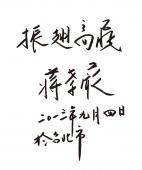 振翅高飛
蔣孝嚴
二〇一三年九月四日
於台北市